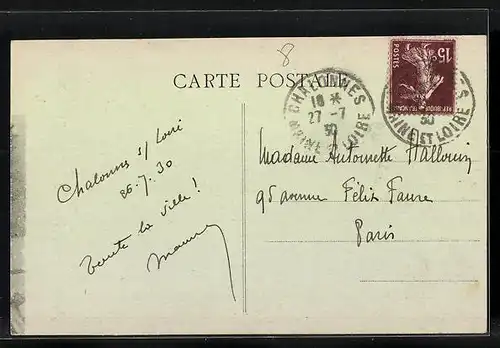 8
CARTE POSTALE
CHALONNES
18 *
27 - 7
30
MAINE ET LOIRE
15c
POSTES
REPUBLIQUE FRANCAISE
30
MAINE ET LOIRE
Chalonnes s/ Loire
26.7.30
toute la ville !
Madame Antoinette Wallouin
95 avenue Félix Faure
Paris